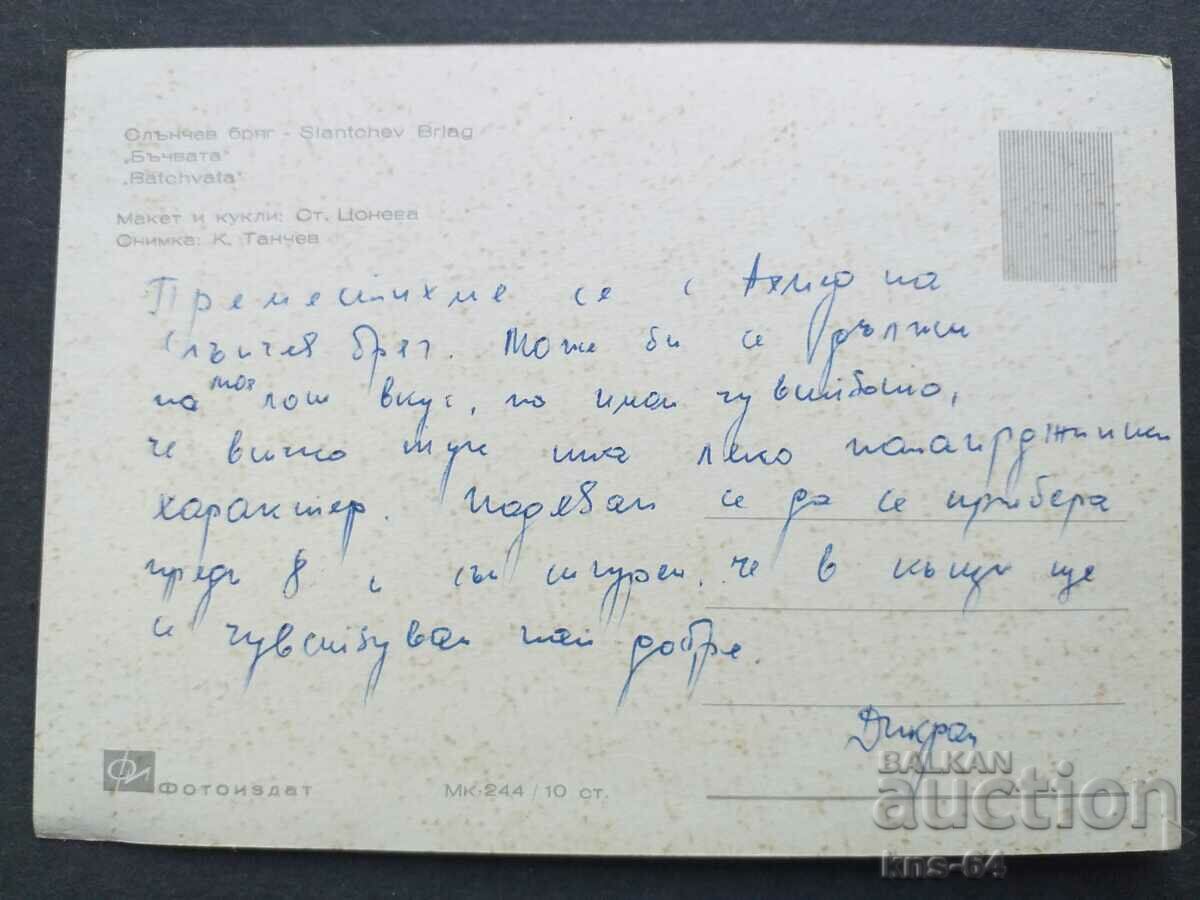 Слънчев бряг - Slantchev Briag
„Бъчвата"
„Batchvata"
Макет и кукли: Ст. Цонева
Снимка: К. Танчев
Преместихме се с на
Слънчев бряг. Може би се дължи
на моя лош вкус, но имам чувството,
че вичко тук има леко
характер. Надявам се да се прибера
преди 8 и съм сигурен, че в къщи ще
и чувствувам най добре.
Дикран
Фотоиздат
МК-244 / 10 ст.
BALKAN
auction
kns-64